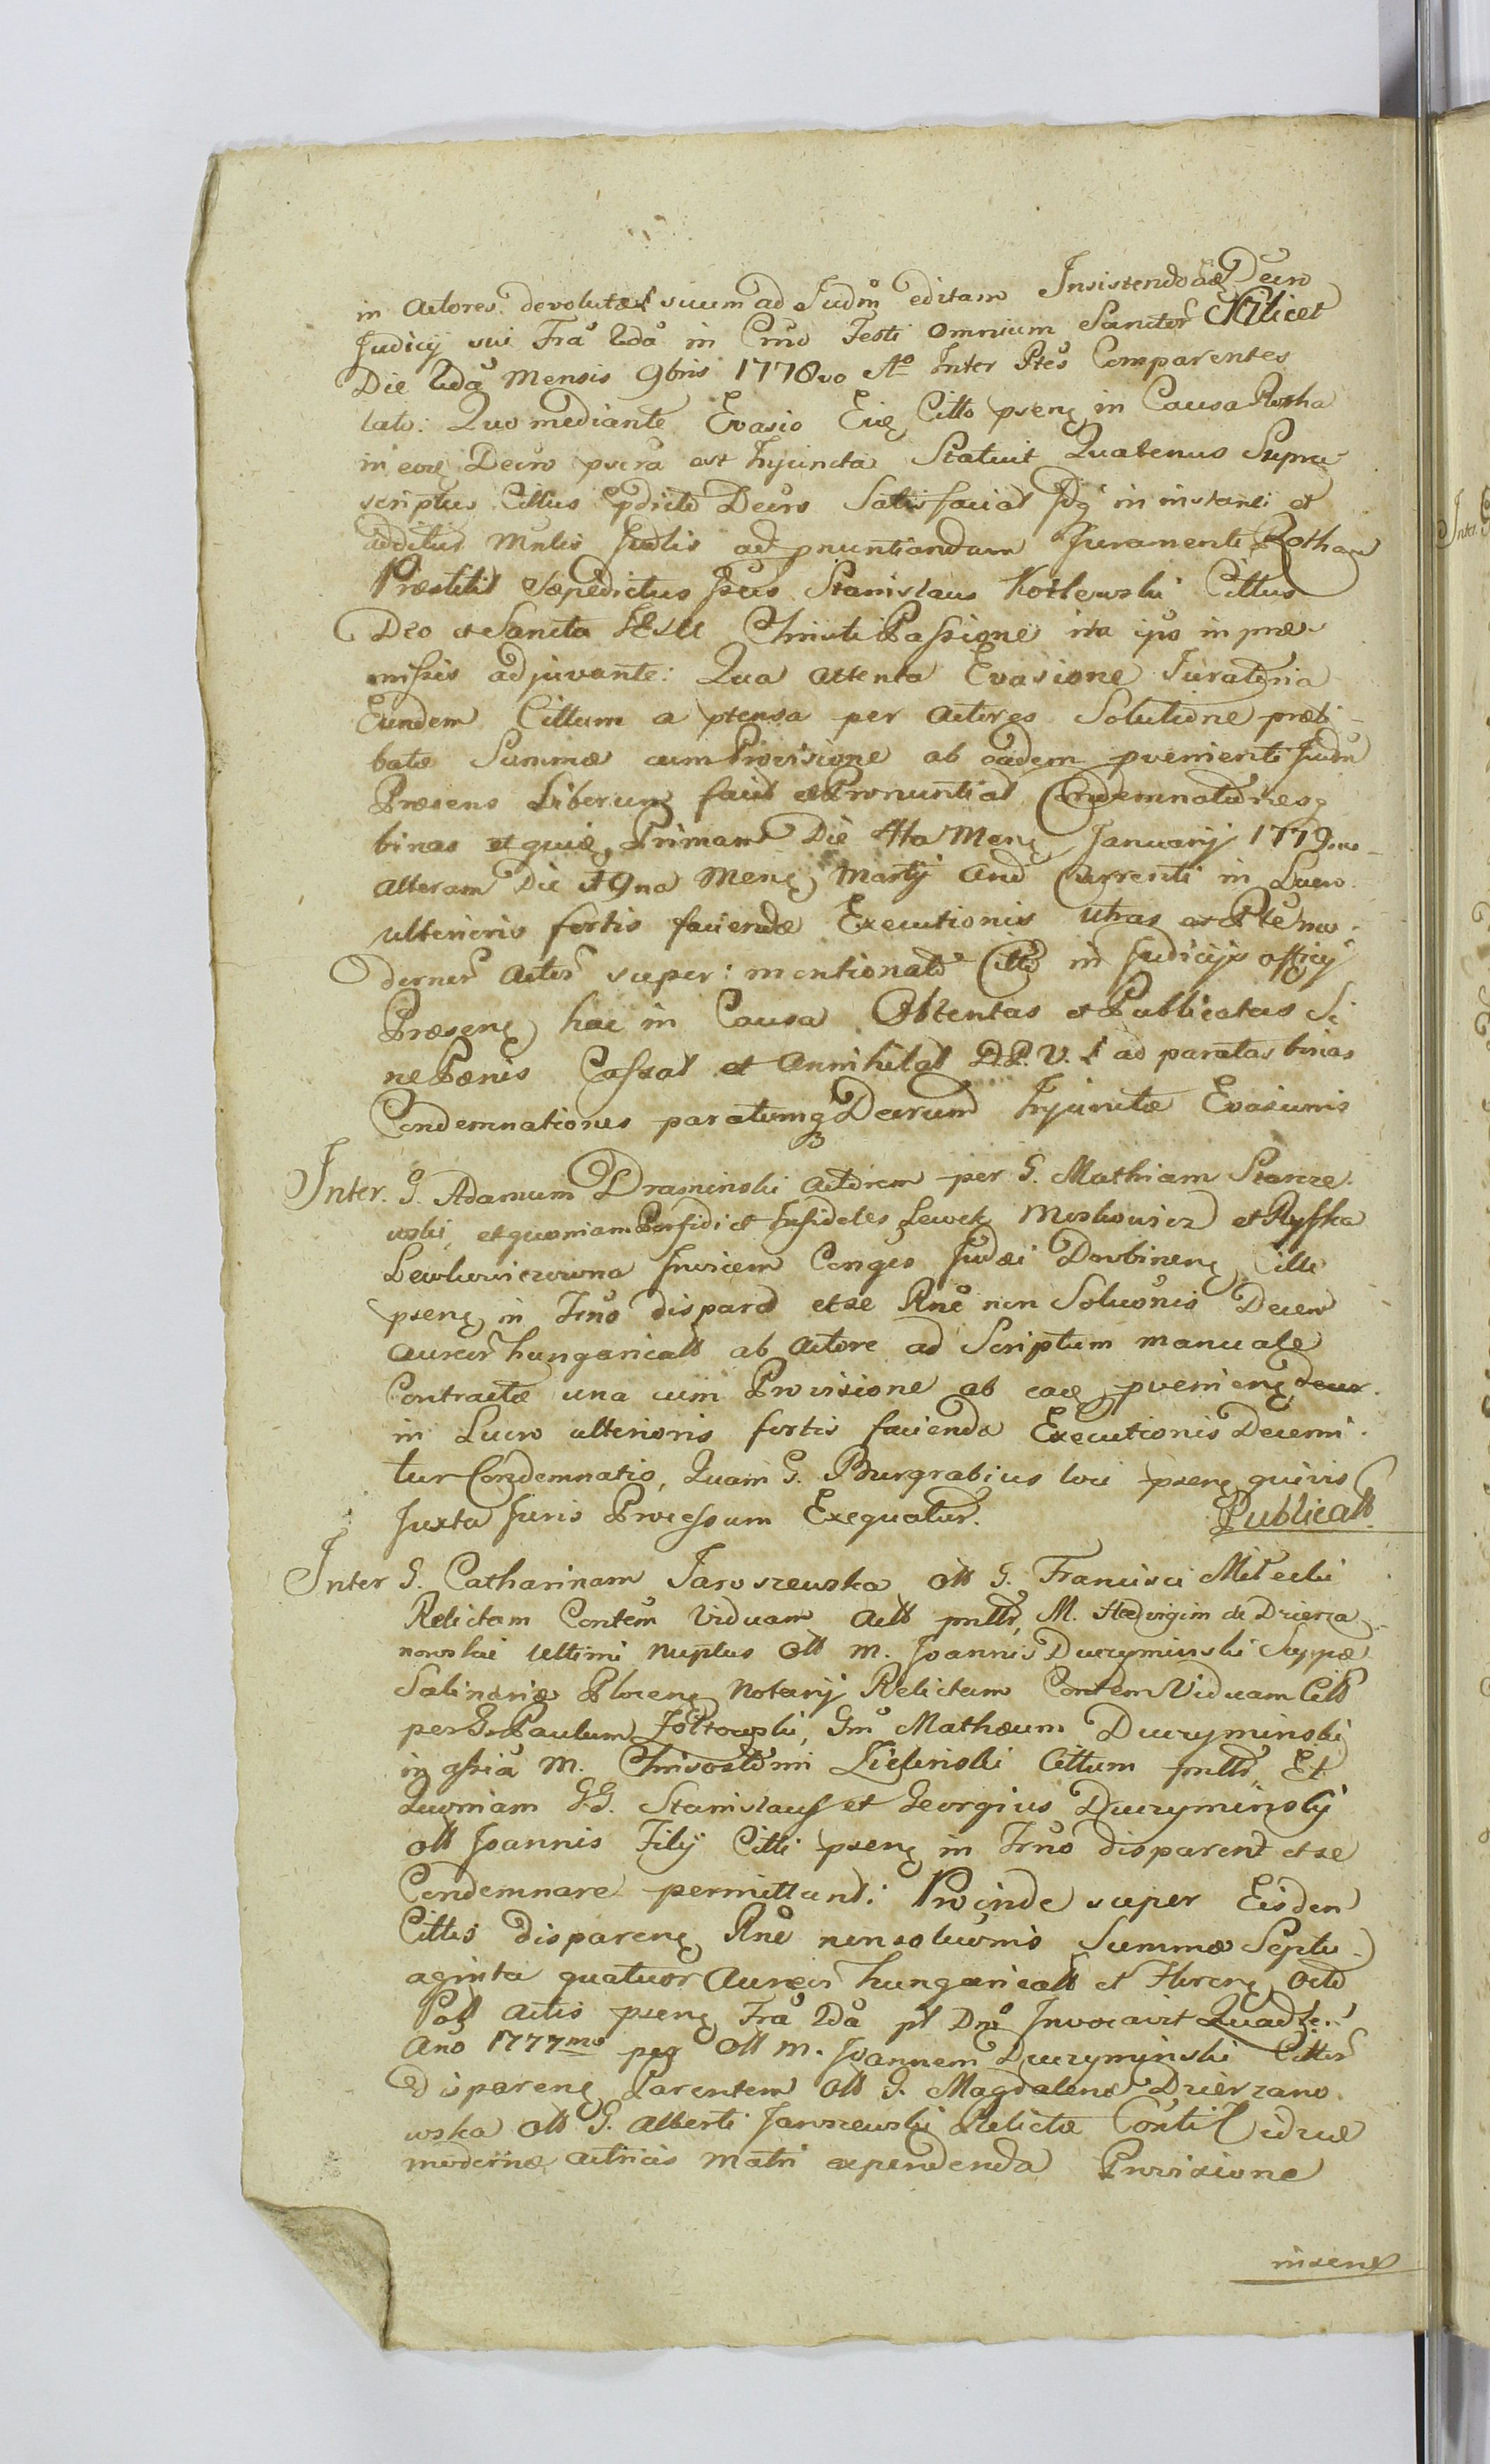 in Actores devolutæ suum ad Judm editam Insistendo Decro
Judicij sui Fra 2da in Cnno Festi Omnium Sanctor Scilicet
Die 2da Mensis 9bris 1778vo Ao Inter Ptes Comparentes
lato: Quo mediante Evasio Citto psenę in Causa Rotha
in eoę Decro pscra est Injuncta Statuit Quatenus Supra
scriptus Cittus Decro Satisfaciat in instanti et
additus Mnlis Judlis ad pnuntiandam Juramenti Rotham
Præstitit Sæpedictus Stanislaus Kotlewski Cittus
Deo et Sancta IESU Christi Passione ita ipso in præ
missis adjuvante: Qua attenta Evasione Juratoria
Eundem Cittum a ptensa per Actores Solutione præli
batæ Summæ cum Provisione ab eadem pvenienti Judm
Præsens Liberum facit et Pronuntiat Condemnationesq
binas et quie Primam Die 4ta Menę Januarij 1779no
alteram Die 19na Menę Martij Anno Currenti in Lucro
ulterioris fortis faciendæ Executionis utras ex Pte mo
dernor Actor super: mentionato Citto in Judicijs officij
Præsenę hac in Causa Obtentas et Publicatas Si
ne Pænis Cassat et Annihilat D.P.V.S ad paratas binas
Condemnationes paratumq Decrum Injunctæ Evasionis
Inter. G. Adamum Draminski Actorem per G. Mathiam Starze
wski, et quoniam Perfidi et Infideles Lewek Moskowicz et Ryfka
Lewkowiczowna Invicem Conges Judæi Drobinenę Citti
psenę in Trno disparent et se Rne non Soluonis Decem
Aureor hungaricall ab Actore ad Scriptum manuale
Contractæ una cum Provisione ab eaę pvenienę
in Lucro ulterioris fortis faciendæ Executionis Decerni
tur Condemnatio, Quam G. Burgrabius loci psenę quivis
Juxta Juris Processum Exequatur. Publicatt
Inter G. Catharinam Jaroszewska ott G. Francisci Mileski
Relictam Contem Viduam Actt pnlltr, M. Hedvigim de Dzierza
nowskie Ultimi Nuptus Ott M. Joannis Duczyminski Suppæ
Salinariæ Plocenę Notarij Relictam Contem Viduam Citt
per G. Paulum Zołtowski, Gm Mathæum Duczyminski
in assia M. Chrisostomi Zielinski Cittum pnlltr, Et
Quoniam GG. Stanislaus et Georgius Duczyminskij
ott Joannis Filij Citti psenę in Trno disparent et se
Condemnare permittunt: Proinde super Eisdem
Cittis disparenę Rne nonsoluonis Summæ Septu
aginta quatuor Aureor hungaricall et Florenę Octo
Poll Actis psenę Fra 2da pt Dni Invocavit Quadze
Ano 1777mo peg Ott M. Joannem Duczyminski Cittor
Disparenę Parentem Ott G. Magdalenæ Dzierzano
wska Ott G. Alberti Jaroszewski Relictæ Conti Viduæ
modernæ Actricis Matri expendenda Provisione
insenę